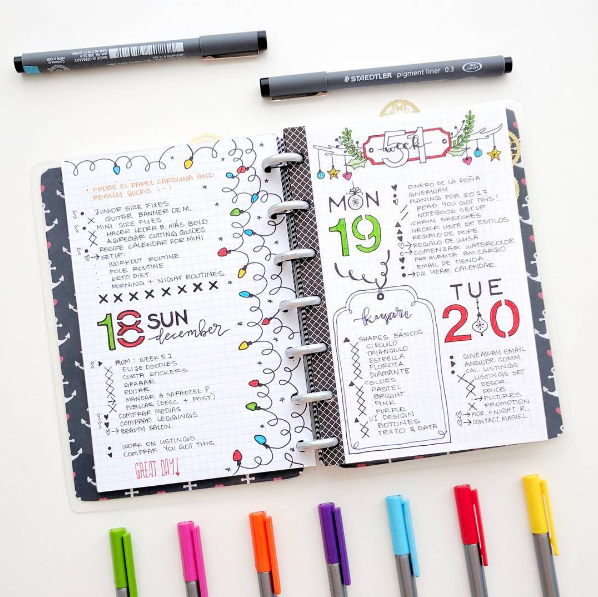 STAEDTLER pigment liner 0.3
• PROBÉ EL PAPEL CANTUNIA AND
REALLY SUCKS
JUNIOR SIZE FIXES
GUITAR BANNER DE M.
MINI SIZE FIXES
HACER LETRA B MÁS BOLD
AGREGAR CUTTING GUIDES
RECIPE CALENDAR FOR MINI
SETUP:
WORKOUT ROUTINE
POLE ROUTINE
KETO DIET
MORNING + NIGHT ROUTINES
18 SUN
december
PWM: WEEK 52
ELIGE DOODLES
CORTA STICKERS
GRABAR
EDITAR
MANDAR A
PUBLICAR (DESC + POST)
COMPRAR MEDIAS
COMPRAR LEGGINGS
BEAUTY SALON
WORK ON LISTINGS
COMPRAR YOU GOT THIS
GREAT DAY!
week 51
MON
19
DINERO DE LA DOÑA
GIVEAWAY
PLANNING FOR 2017
READ YOU GOT THIS!
NOTEBOOK SETUP
CHAIN SKETCHES
HACER LISTA DE ESTILOS
REGALO DE POPE
REGALO DE LUISA
COMENZAR WATERCOLOR
PREGUNTA RM CARGO
EMAIL DE TIENDA
FIX YEAR CALENDAR
SHAPES BÁSICOS
CÍRCULO
TRIÁNGULO
ESTRELLA
FLORCITA
DIAMANTE
COLORS
PASTEL
BRIGHT
PINK
PURPLE
UI DESIGN
BOTONES
TEXTO & DATA
TUE
20
GIVEAWAY EMAIL
ANSWER COMM.
CAL. LISTINGS
LISTINGS SET
DESCR.
PRICE
PICTURES
PROMOTION
MOR + NIGHT R.
CONTACT